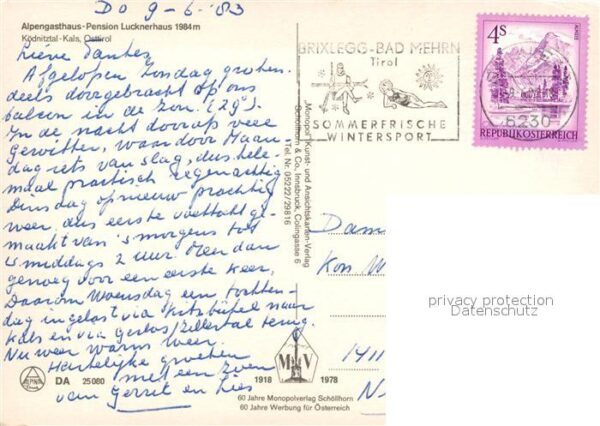 Do 9-6-'83
Alpengasthaus-Pension Lucknerhaus 1984 m
Ködnitztal-Kals, Osttirol
Lieve Tantes
Afgelopen Zondag groten-
deels doorgebracht op ons
balcon in de zon. (29°).
In de nacht daarop veel
Gewitter, waardoor Maan-
dag iets van slag, dus hele-
maal practisch regenachtig
Dinsdag opnieuw prachtig
weer, dus eerste voettocht ge-
maakt van 's morgens tot
's middags 2 uur. Meer dan
genoeg voor een eerste keer,
Daarom Woensdag een tochten-
dag ingelast via Kitzbühel naar
Kals en via Gerlos/Zillertal terug.
Nu weer warm weer.
Hartelijke groeten
met een zoen
van Gerret en Lies
BRIXLEGG-BAD MEHRN
Tirol
SOMMERFRISCHE
WINTERSPORT
4S
ALMSEE
REPUBLIK ÖSTERREICH
6230
"Monopol" Kunst- und Ansichtskarten-Verlag
Schöllhorn & Co., Innsbruck, Colingasse 6
Tel. Nr. 05222/29816
Dam
Kon W
1411
N
privacy protection
Datenschutz
ALPINA
DA 25080
MV
1918 1978
60 Jahre Monopolverlag Schöllhorn
60 Jahre Werbung für Österreich